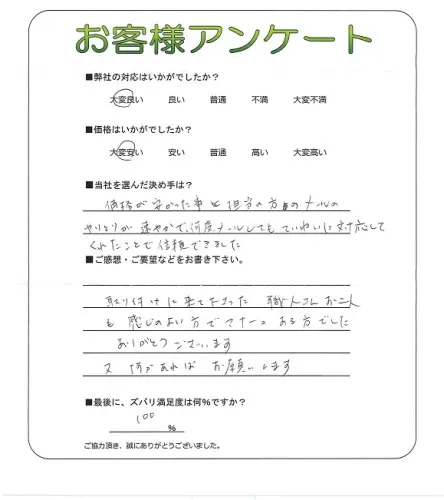 お客様アンケート
■弊社の対応はいかがでしたか?
大変良い 良い 普通 不満 大変不満
■価格はいかがでしたか?
大変安い 安い 普通 高い 大変高い
■当社を選んだ決め手は?
価格が安かった事と担当の方のメールの
やりとりが速やかで、何度メールしてもていねいに対応して
くれたことで信頼できました
■ご感想・ご要望などをお書き下さい。
取り付けに来て下さった 職人さん お二人
も 感じのよい方でマナーのある方でした
ありがとうございます
又 何かあれば お願いします
■最後に、ズバリ満足度は何%ですか?
100
%
ご協力頂き、誠にありがとうございました。